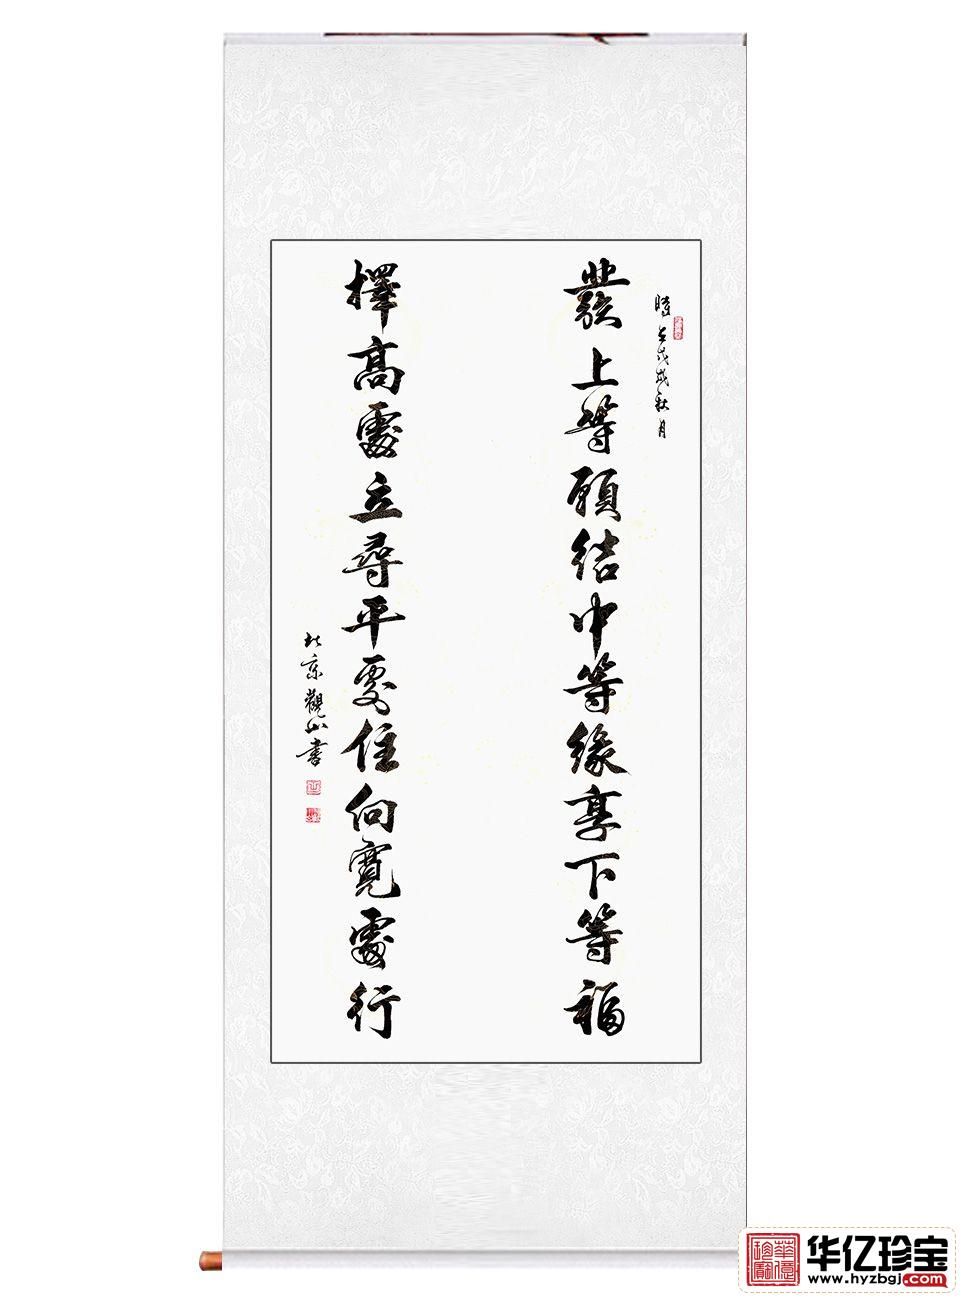 發上等願結中等緣享下等福
擇高處立尋平處住向寬處行
北京觀山書
华亿珍宝
www.hyzbgj.com